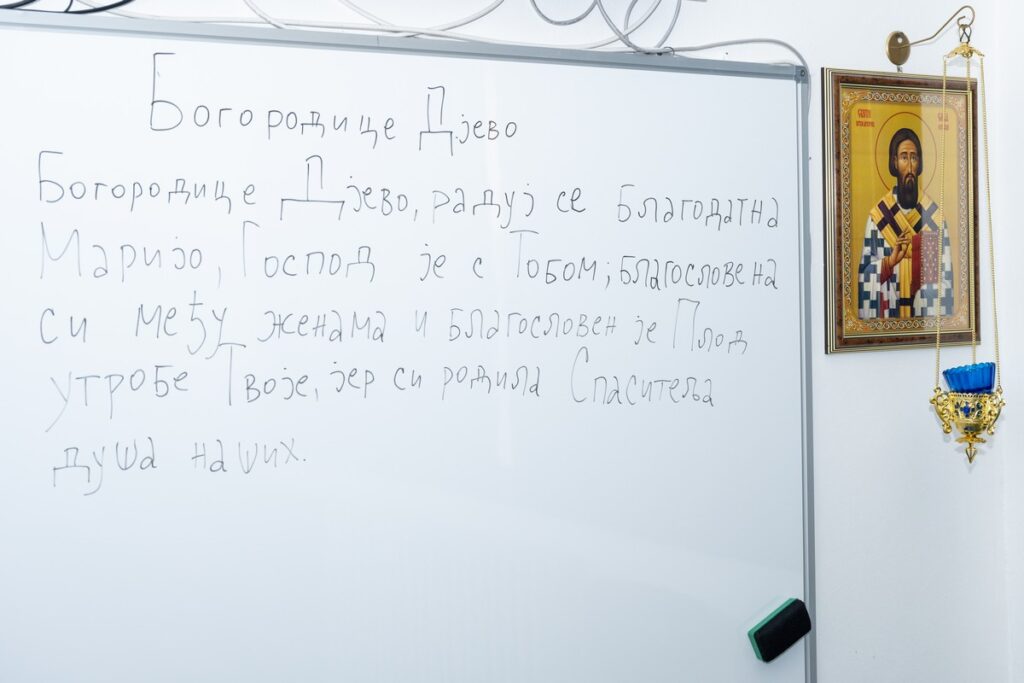 Богородице Дјево
Богородице Дјево, радуј се Благодатна
Маријо, Господ је с Тобом; благословена
си међу женама и благословен је Плод
утробе Твоје, јер си родила Спаситеља
душа наших.